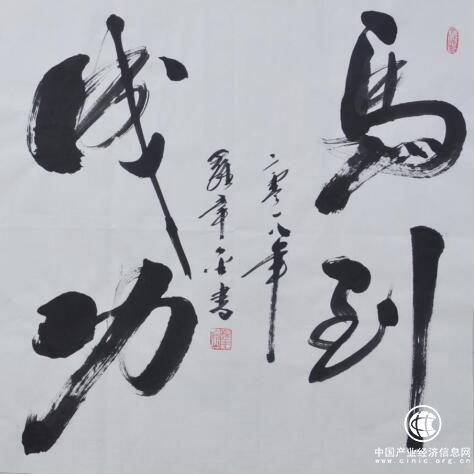 馬到
成功
二零一八年
羅章 書
中国产业经济信息网
www.cinic.org.cn